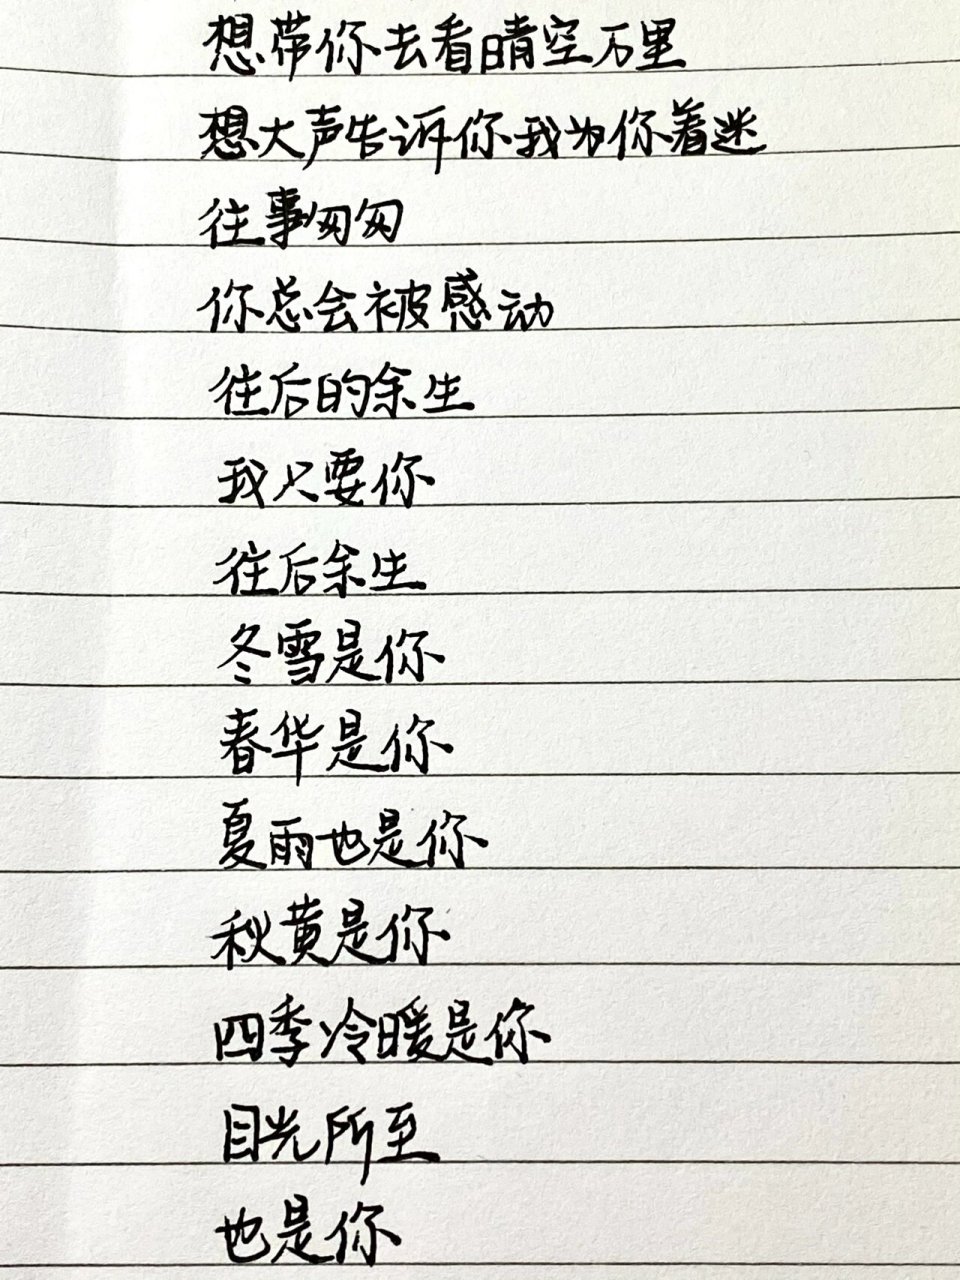 想带你去看晴空万里
想大声告诉你我为你着迷
往事匆匆
你总会被感动
往后的余生
我只要你
往后余生
冬雪是你
春华是你
夏雨也是你
秋黄是你
四季冷暖是你
目光所至
也是你